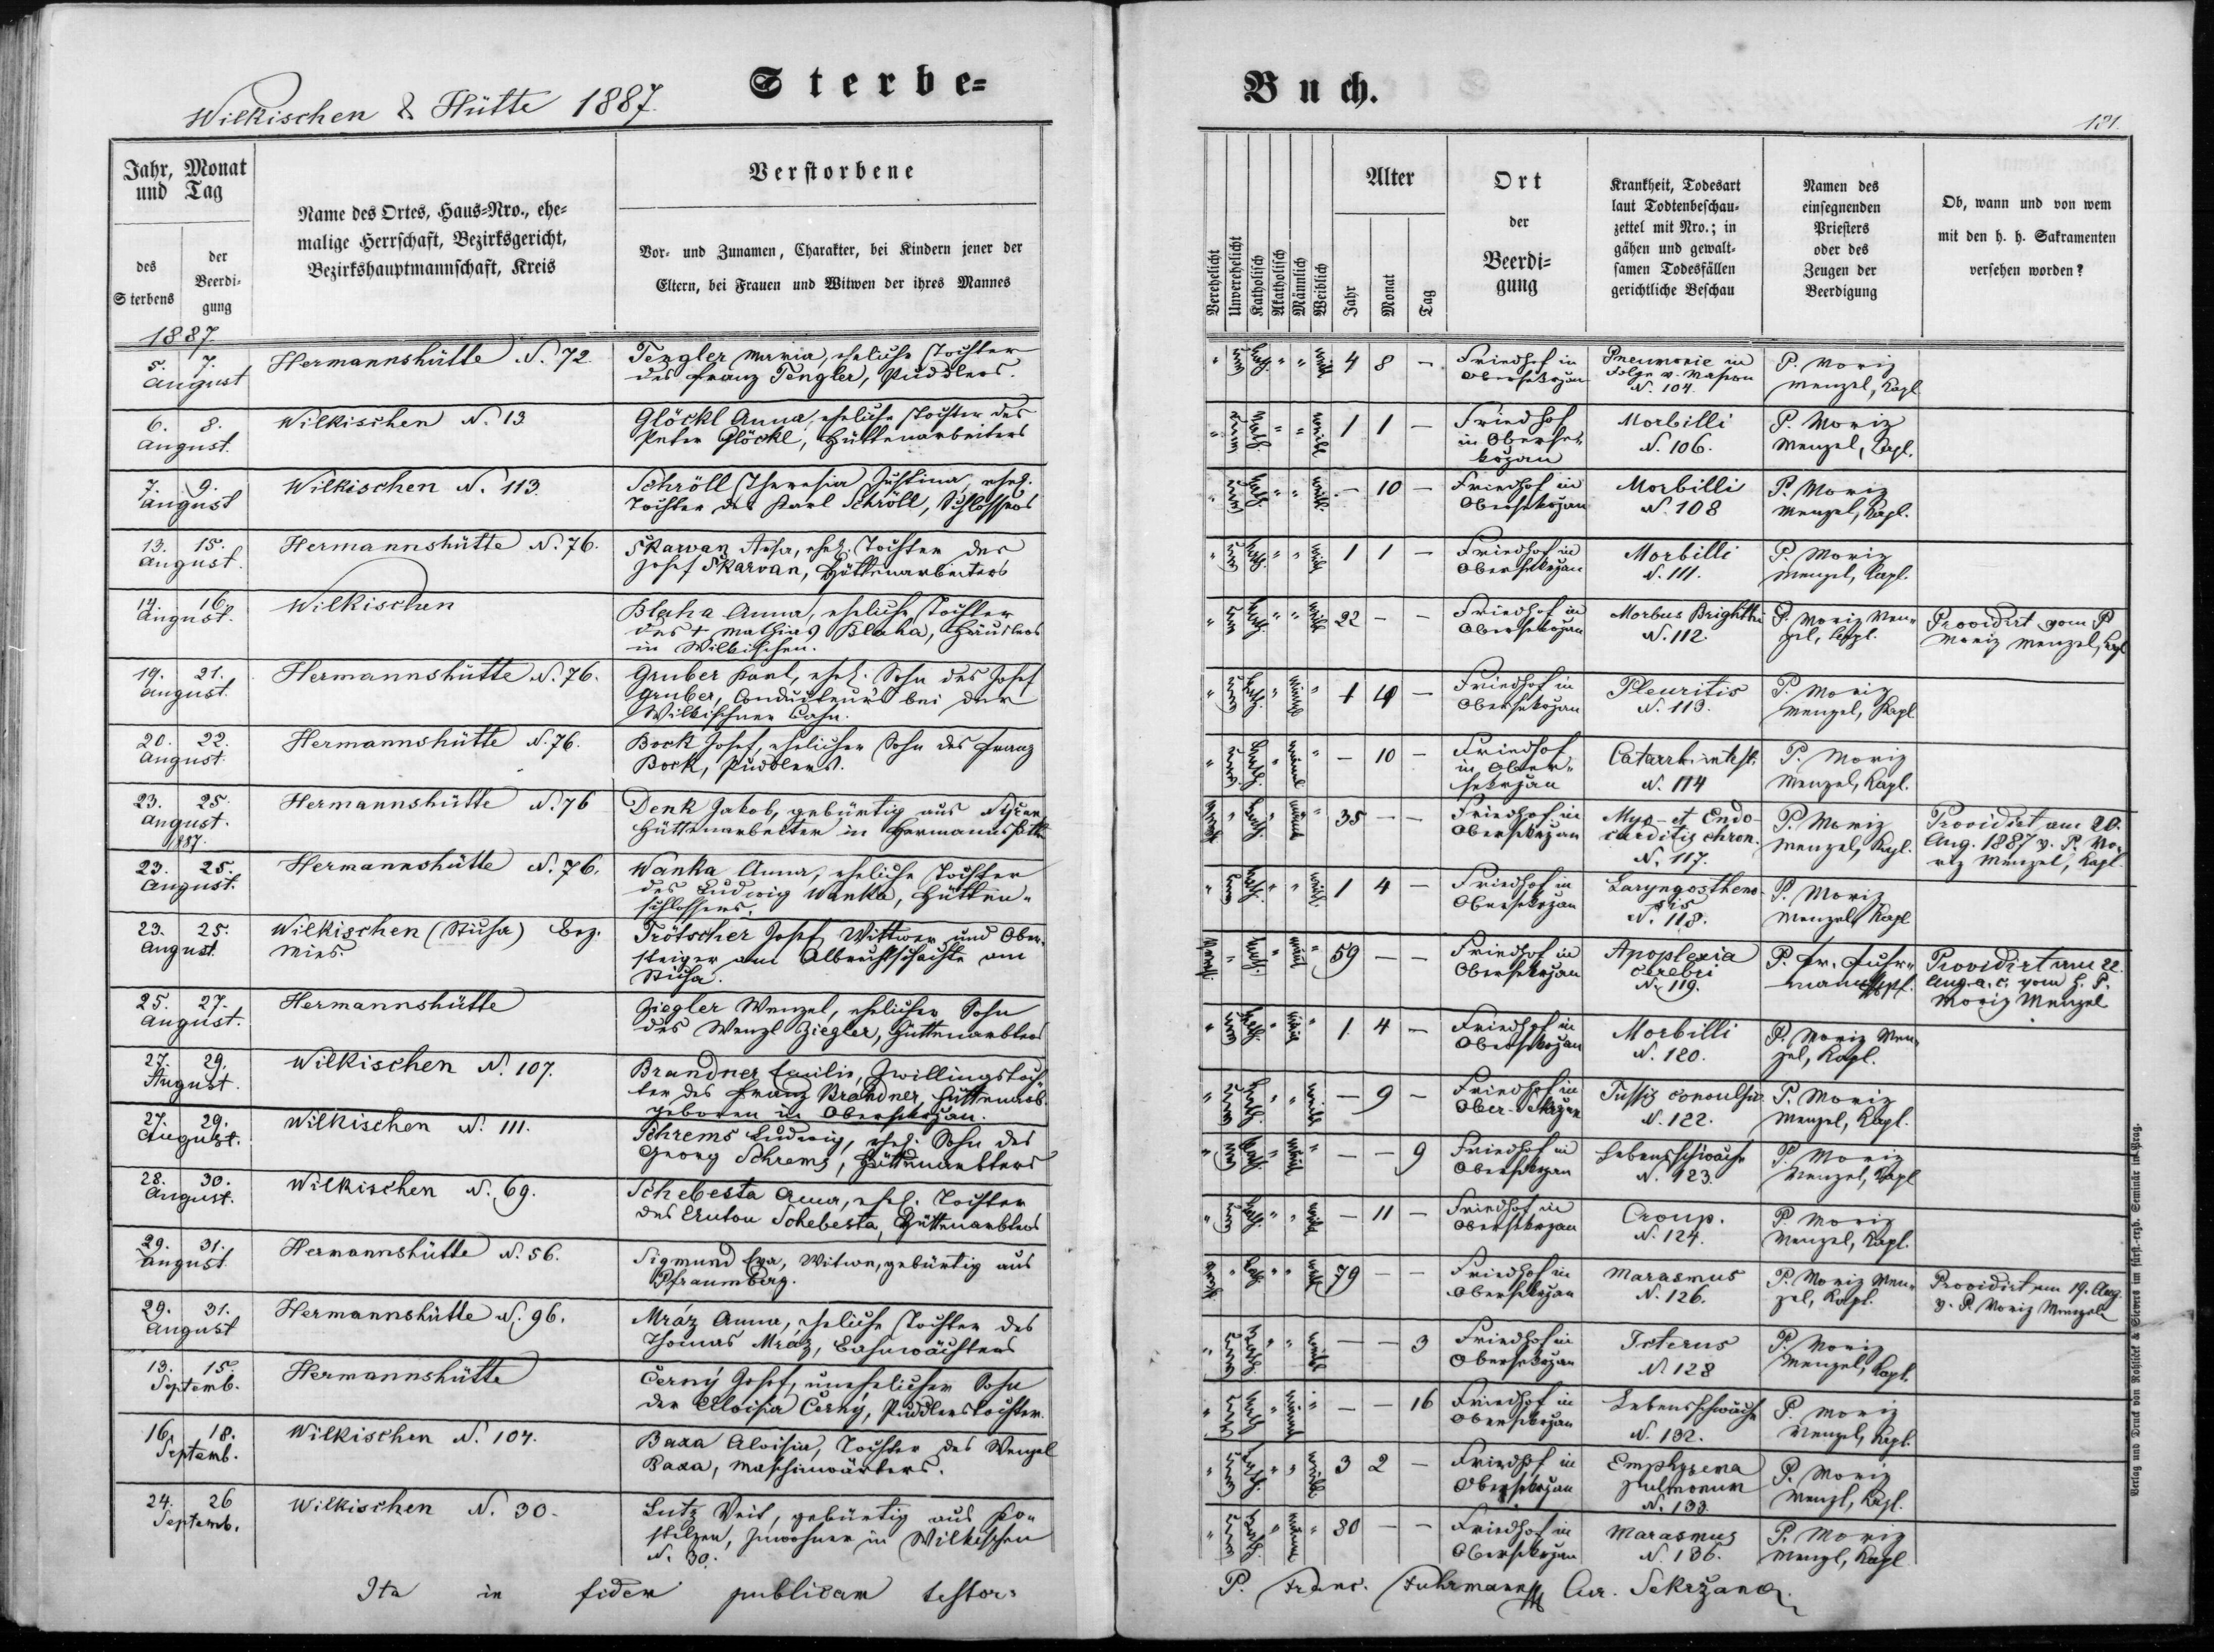 Wilkischen & Hütte 1887.
Sterbe=
Buch.
131.
Jahr, Monat
und Tag
des
Sterbens
der
Beerdi=
gung
Name des Ortes, Haus=Nro., ehe=
malige Herrschaft, Bezirksgericht,
Bezirkshauptmannschaft, Kreis
Verstorbene
Vor= und Zunamen, Charakter, bei Kindern jener der
Eltern, bei Frauen und Witwen der ihres Mannes
Verehelicht
Unverehelicht
Katholisch
Akatholisch
Männlich
Weiblich
Alter
Jahr
Monat
Tag
Ort
der
Beerdi=
gung
Krankheit, Todesart
laut Todtenbeschau=
zettel mit Nro.; in
gähen und gewalt=
samen Todesfällen
gerichtliche Beschau
Namen des
einsegnenden
Priesters
oder des
Zeugen der
Beerdigung
Ob, wann und von wem
mit den h. h. Sakramenten
versehen worden?
1887.
5. 7.
August
Hermannshütte N. 72.
Tengler Maria, eheliche Tochter
des Franz Tengler, Puddlers.
4 8 –
Friedhof in
Obersekržan
Pneumonie in
Folge v. Masern
N. 104.
P. Moriz
Menzel, Kapl
6. 8.
August.
Wilkischen N. 13
Glöckl Anna, eheliche Tochter des
Peter Glöckl, Hüttenarbeiters
1 1 –
Friedhof
in Oberse=
kržan
Morbilli
N. 106.
P. Moriz
Menzel, Kapl.
7. 9.
August
Wilkischen N. 113.
Schröll Theresia Justina, ehel.
Tochter des Karl Schröll, Schlossers
– 10 –
Friedhof in
Obersekržan
Morbilli
N. 108
P. Moriz
Menzel, Kapl.
13. 15.
August.
Hermannshütte N. 76.
Skarvan, ehel. Tochter des
Josef Skarvan, Hüttenarbeiters
1 1 –
Friedhof in
Obersekržan
Morbilli
N. 111.
P. Moriz
Menzel, Kapl.
14. 16.
August.
Wilkischen
Blaha Anna, eheliche Tochter
des + Mathias Blaha, Häuslers
in Wilkischen.
22 – –
Friedhof in
Obersekržan
Morbus Brighthi
N. 112
P. Moriz Men=
zel, Kapl.
Providirt vom P
Moriz Menzel, Kpl
19. 21.
August.
Hermannshütte N. 76.
Gruber Karl, ehel. Sohn des Josef
Gruber, Conducteurs bei der
Wilkischner Bahn.
1 4 –
Friedhof in
Obersekržan
Pleuritis
N. 113.
P. Moriz
Menzel, Kapl
20. 22.
August.
Hermannshütte N. 76.
Bock Josef, ehelicher Sohn des Franz
Bock, Puddlers.
– 10 –
Friedhof
in Ober=
sekržan
Catarrh. intest.
N. 114
P. Moriz
Menzel, Kapl.
23. 25.
August.
1887.
Hermannshütte N. 76
Denk Jakob, gebürtig aus
Hüttenarbeiter in Hermannshütte
35 – –
Friedhof in
Obersekržan
Myo- et Endo-
carditis chron.
N. 117.
P. Moriz
Menzel, Kapl.
Providirt am 20.
Aug. 1887 v. P. Mo=
riz Menzel, Kapl.
23. 25.
August.
Hermannshütte N. 76.
Wanka Anna, eheliche Tochter
des Ludwig Wanka, Hütten=
schlossers.
1 4 –
Friedhof in
Obersekržan
Laryngostheno-
sis
N. 118.
P. Moriz
Menzel Kapl
23. 25.
August
Wilkischen Bez.
Mies.
Trötscher Josef, Wittwer und Ober=
steiger am Albrechtschachte am
59 – –
Friedhof in
Obersekržan
Apoplexia
cerebri
N. 119.
P. Fr. Fuhr=
mann
Providirt am 22.
Aug. a. c. vom H. P.
Moriz Menzel
25. 27.
August.
Hermannshütte
Ziegler Wenzel, ehelicher Sohn
des Wenzl Ziegler, Hüttenarbters
1. 4 –
Friedhof in
Obersekržan
Morbilli
N. 120.
P. Moriz Men=
zel, Kapl.
27. 29.
August.
Wilkischen N. 107.
Brandner Emilie, Zwillingstoch=
ter des Franz Brandner, Hüttenarb.
geboren in Obersekržan.
– 9 –
Friedhof in
Ober-Sekržan
Tussis convulsiv.
N. 122.
P. Moriz
Menzel, Kapl.
27. 29.
August.
Wilkischen N. 111.
Schrems Ludwig, ehel. Sohn des
Georg Schrems, Hüttenarbters
– – 9
Friedhof in
Obersekržan
Lebensschwäche
N. 123.
P. Moriz
Menzel, Kapl
28. 30.
August.
Wilkischen N. 69.
Schebesta Anna, ehel. Tochter
des Anton Schebesta, Hüttenarbters
– 11 –
Friedhof in
Obersekržan
Croup.
N. 124.
P. Moriz
Menzel, Kapl.
29. 31.
August.
Hermannshütte N. 56.
Sigmund Eva, Witwe, gebürtig aus
Pfraumberg.
79 – –
Friedhof in
Obersekržan
Marasmus
N. 126.
P. Moriz Men=
zel, Kapl.
Providirt am 19. Aug.
v. P. Moriz Menzel
29. 31.
August
Hermannshütte N. 96.
Mráz Anna, eheliche Tochter des
Thomas Mráz, Bahnwächters
– – 3
Friedhof in
Obersekržan
Icterus
N. 128
P. Moriz
Menzel, Kapl.
13. 15.
Septemb.
Hermannshütte
Černý Josef, unehelicher Sohn
der Aloisia Černý, Puddlerstochter.
– – 16
Friedhof in
Obersekržan
Lebensschwäche
N. 132.
P. Moriz
Menzel, Kapl.
16. 18.
Septemb.
Wilkischen N. 104.
Baxa Aloisia, Tochter des Wenzel
Baxa, Maschinwärters.
3 2 –
Friedhof in
Obersekržan
Emphysema
pulmonum
N. 133.
P. Moriz
Menzl, Kapl.
24. 26
Septemb.
Wilkischen N. 30.
Lutz Veit, gebürtig aus
Inwohner in Wilkischen
N. 30.
80 – –
Friedhof in
Obersekržan
Marasmus
N. 136.
P. Moriz
Menzl, Kapl
Ita in fidem publicam testor:
P. Franc. Fuhrmann Cur. Sekržana.
Verlag und Druck von Rohliček & Sievers im fürst.-erzb. Seminär in Prag.